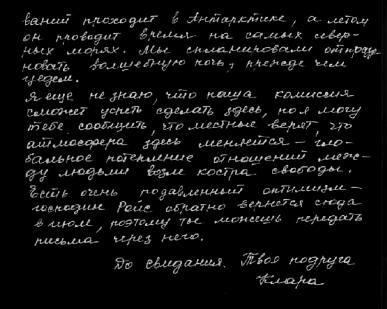 ваний проходит в Антарктике, а летом
он проводит время на самых север-
ных морях. Мы спланировали отпраз
новать волшебную ночь, прежде чем
уедем.
Я еще не знаю, что наша комиссия
сможет успеть сделать здесь, но я могу
тебе сообщить, что местные верят, что
атмосфера здесь меняется – гло-
бальное потепление отношений меж-
ду людьми возле костра свободы.
Есть очень подавленный оптимизм –
господин Ройс обратно вернется сюда
в июле, поэтому ты можешь передать
письма через него.
До свидания. Твоя подруга
Клара